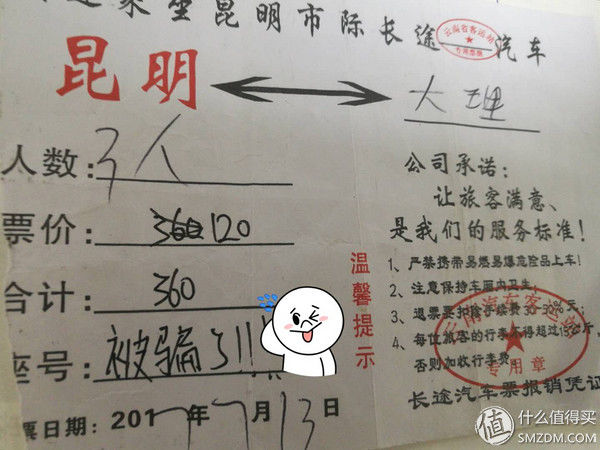 乘坐昆明市际长途 汽车
云南省客运站
专用票据
昆明 ⟷ 大理
人数:3人
票价:360 120
合计:360
座号:被骗了!!!
票日期:2017年7月13日
公司承诺:
让旅客满意、
是我们的服务标准!
温馨提示
1、严禁携带易燃易爆危险品上车!
2、注意保持车厢内卫生;
3、退票要扣除手续费
4、每位旅客的行李不得超过 公斤,
否则加收行李费。
云南汽车客运站
专用章
长途汽车票报销凭证
值 什么值得买
SMZDM.COM